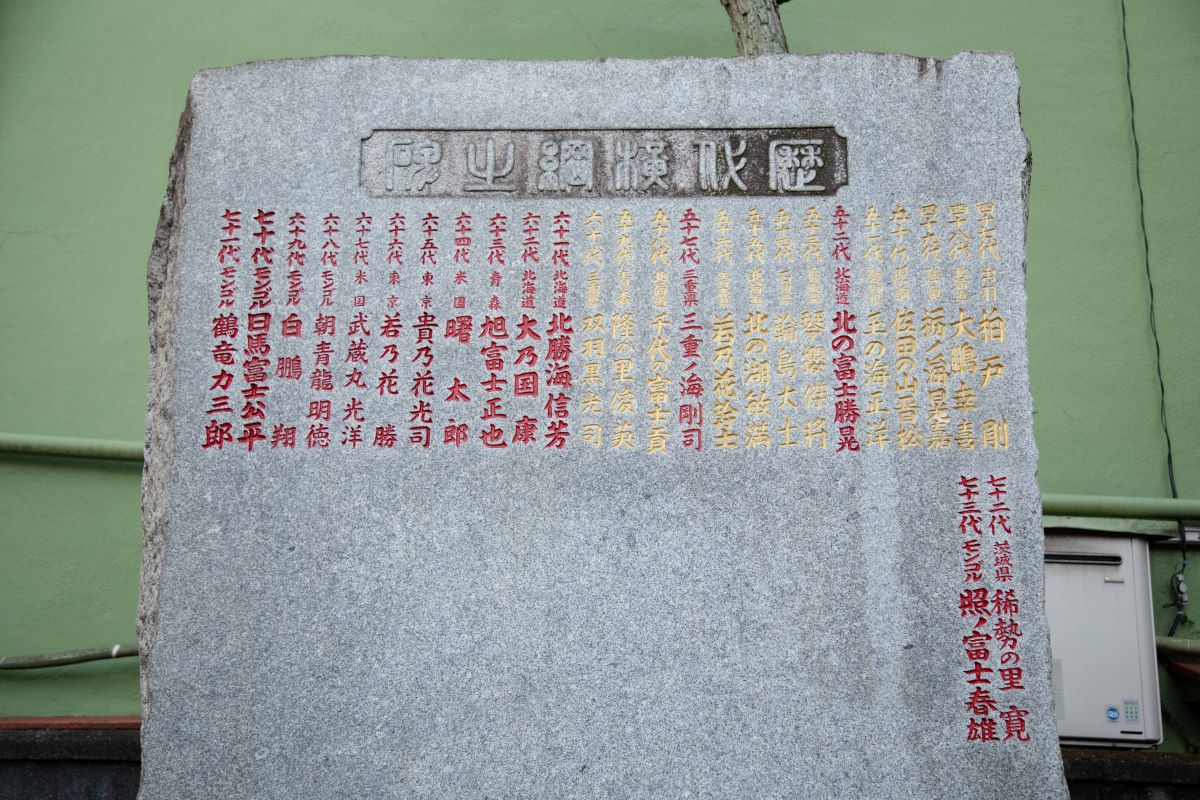 歴代横綱之碑
四十七代 柏戸 剛
四十八代 大鵬幸喜
四十九代 栃ノ海晃嘉
五十代 佐田の山晋松
五十一代 玉の海正洋
五十二代 北海道 北の富士勝晃
五十三代 琴櫻傑将
五十四代 輪島大士
五十五代 北の湖敏満
五十六代 若乃花幹士
五十七代 三重県 三重ノ海剛司
五十八代 北海道 千代の富士貢
五十九代 青森 隆の里俊英
六十代 三重県 双羽黒光司
六十一代 北海道 北勝海信芳
六十二代 北海道 大乃国 康
六十三代 青森 旭富士正也
六十四代 米国 曙 太郎
六十五代 東京 貴乃花光司
六十六代 東京 若乃花 勝
六十七代 米国 武蔵丸光洋
六十八代 モンゴル 朝青龍明徳
六十九代 モンゴル 白鵬 翔
七十代 モンゴル 日馬富士公平
七十一代 モンゴル 鶴竜力三郎
七十二代 茨城県 稀勢の里 寛
七十三代 モンゴル 照ノ富士春雄